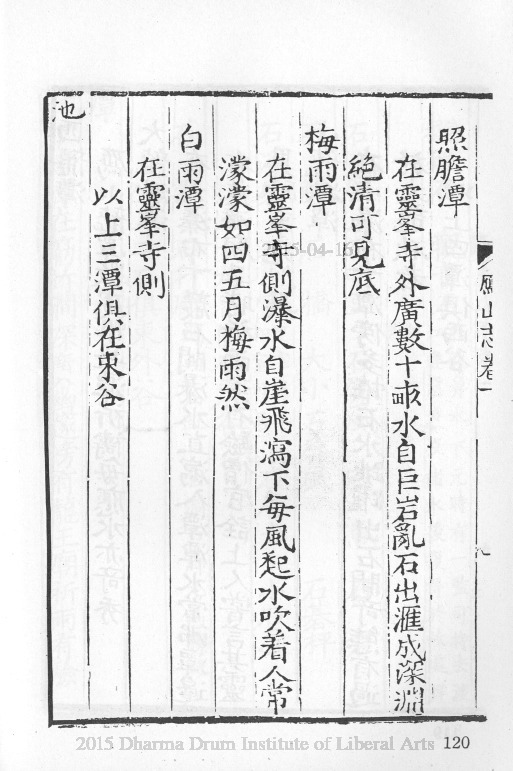 鴈山志卷一
照膽潭
在靈峯寺外廣數十畝水自巨岩亂石出滙成深淵
絕清可見底
梅雨潭
在靈峯寺側瀑水自崖飛瀉下每風起水吹着人常
濛濛如四五月梅雨然
白雨潭
在靈峯寺側
以上三潭俱在東谷
池
2015-04-15
2015 Dharma Drum Institute of Liberal Arts 120